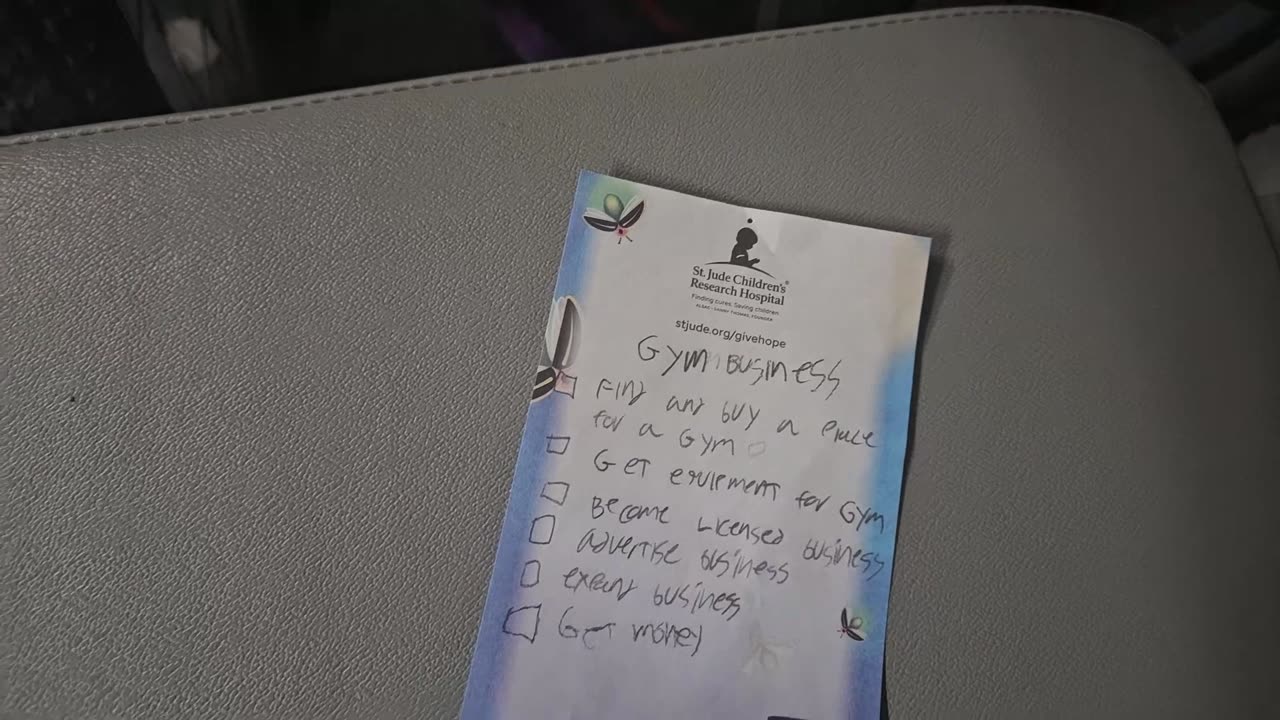 St. Jude Children's®
Research Hospital
Finding cures. Saving children.
ALSAC • DANNY THOMAS, FOUNDER
stjude.org/givehope
GYM BUSINESS
FIND and buy a place
for a GYM
GET equipment for GYM
Become Licensed business
advertise business
expand business
GET money